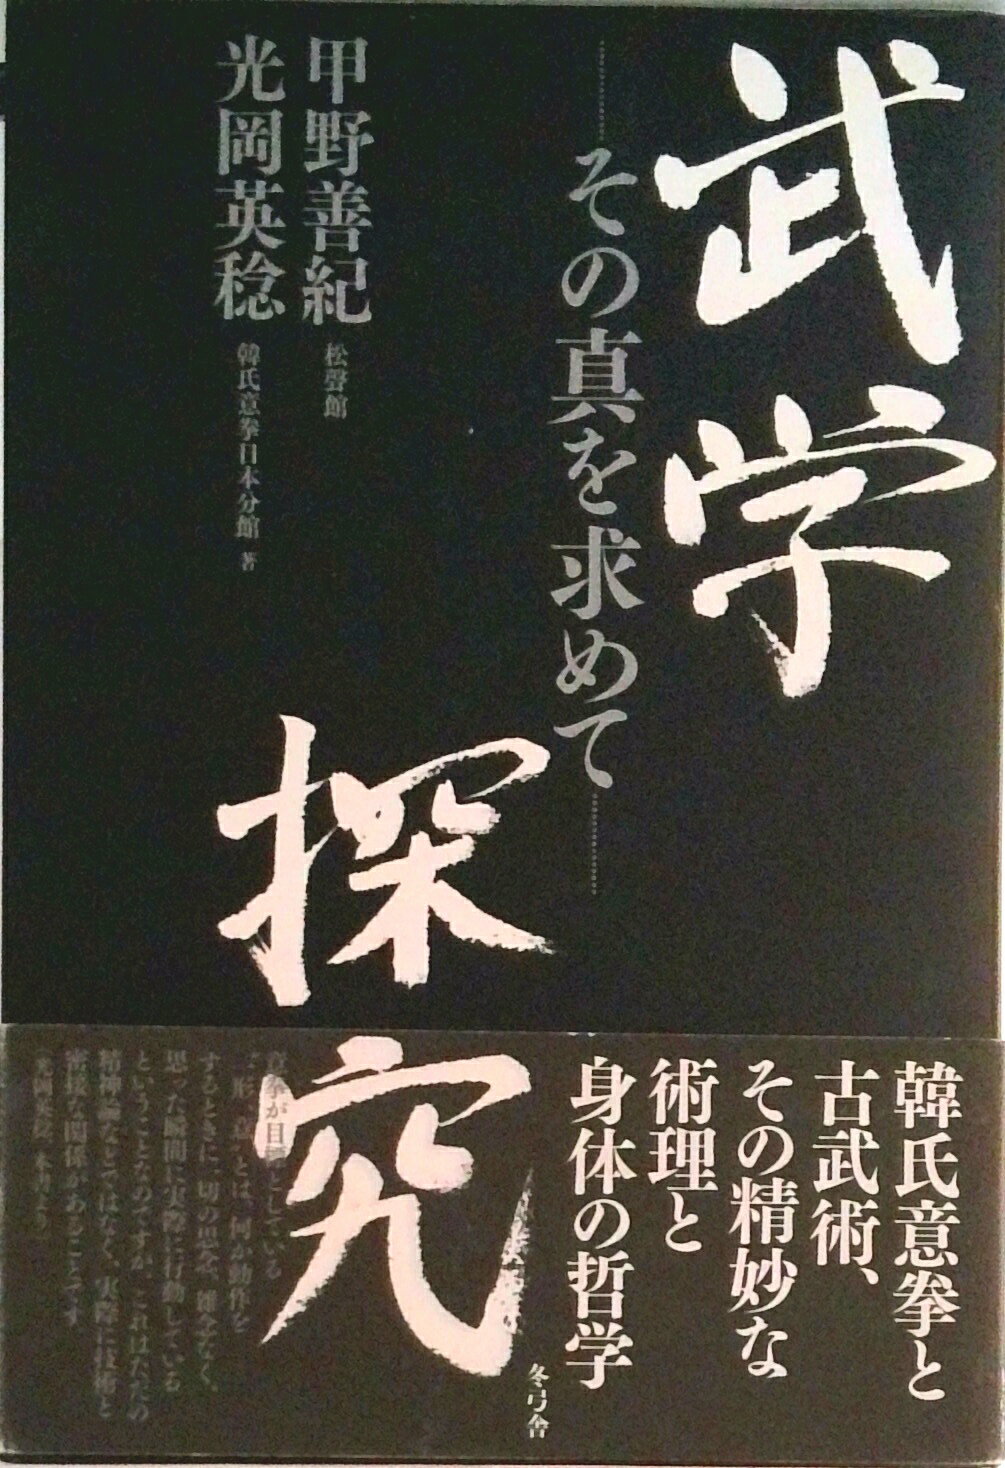 武学
探究
その真を求めて
甲野善紀 松聲館
光岡英稔 韓氏意拳日本分館 著
韓氏意拳と
古武術、
その精妙な
術理と
身体の哲学
意拳が目標としている
とは、何か動作を
するときに一切の思念、雑念なく、
思った瞬間に実際に行動している
ということなのですが、これはただの
精神論などではなく、実際に技術と
密接な関係があることです。
(光岡英稔 本文より)
冬弓舎